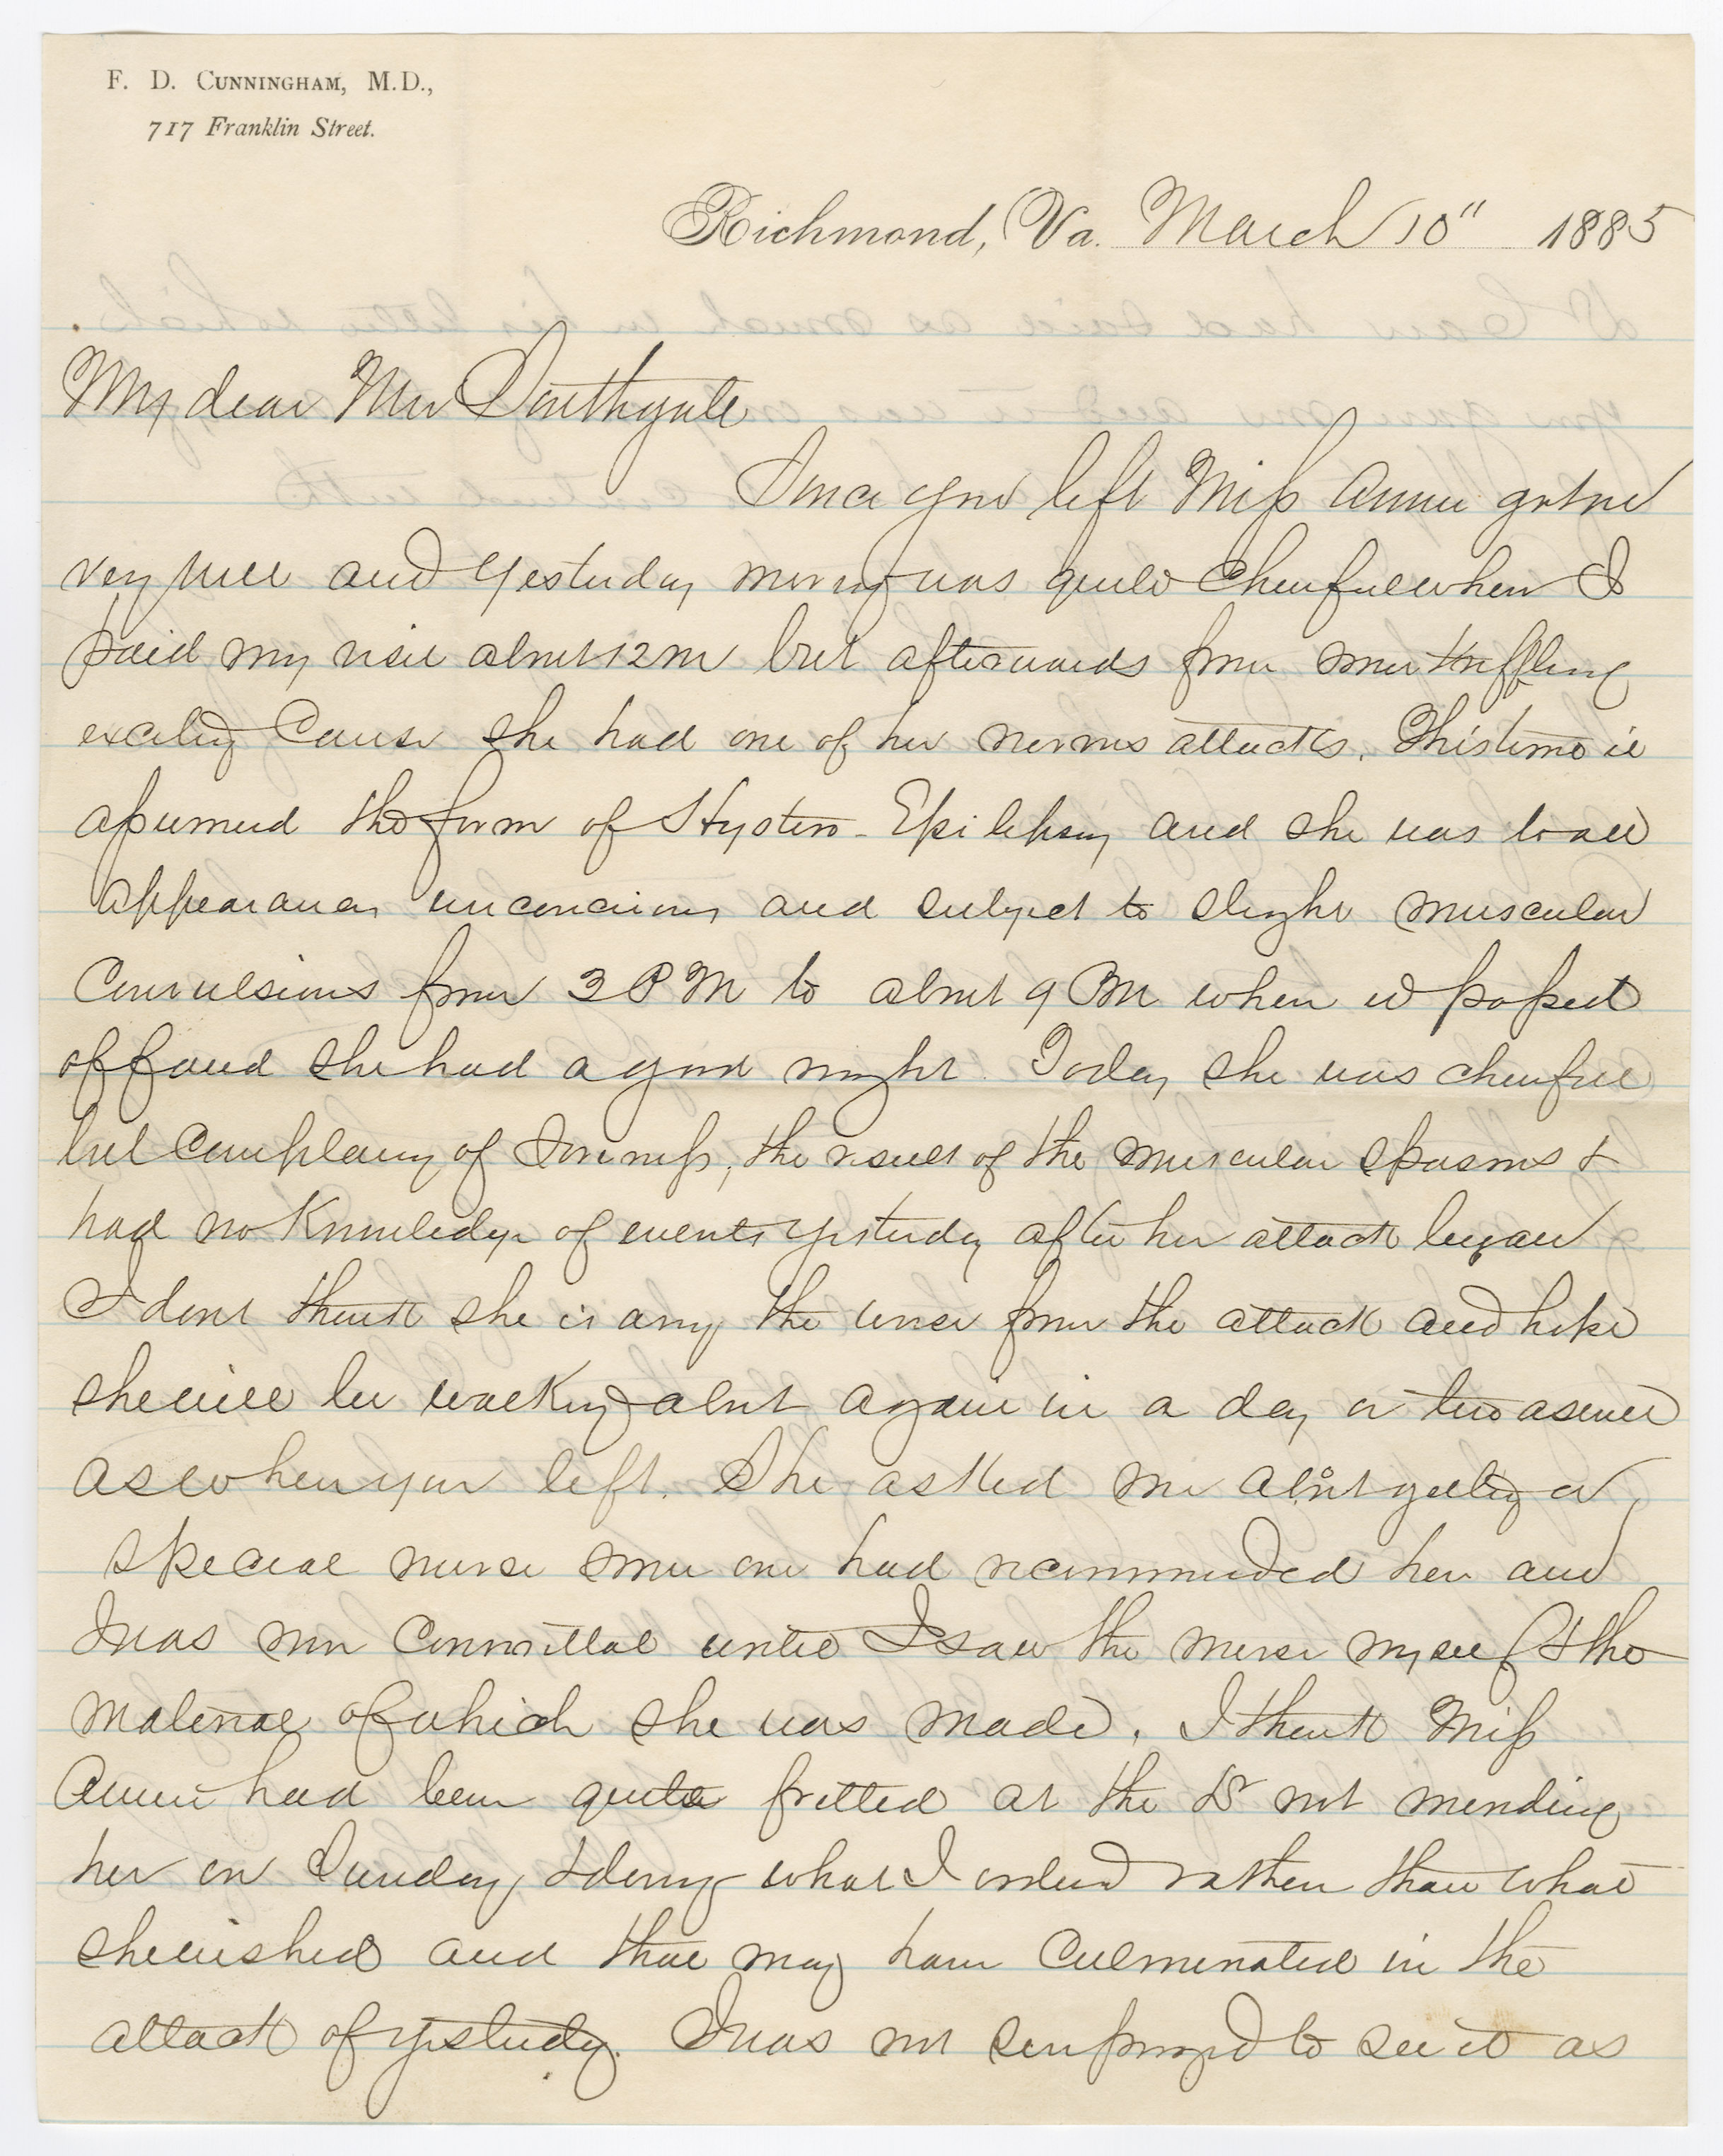 F. D. CUNNINGHAM, M.D.,
717 Franklin Street.
Richmond, Va. March 10" 1885
My dear Mrs Southgate
Since you left Miss Annie got on
very well and yesterday morning was quite cheerful when I
paid my visit about 12 m but afterwards from some triffling
exciting cause she had one of her nervous attacks. This time it
assumed the form of Hystero-Epilepsy and she was to all
appearances unconcious and subject to slight muscular
Convulsions from 3 P M to about 9 PM when it passed
off and she had a good night. Today she was cheerful
but complaing of soreness, the result of the muscular spasms &
had no knowledge of events yesterday after her attack began
I dont think she is any the worse from the attack and hope
she will be walking about again in a day or two as well
as when you left. She asked me about getting a
special nurse some one had recommended her and
I was non committal until I saw the nurse myself & the
material of which she was made. I think Miss
Annie had been quite fretted at the Dr not minding
her on Sunday, & doing what I ordered rather than what
she wished and that may have culminated in the
attack of yesterday. I was not surprised to see it as